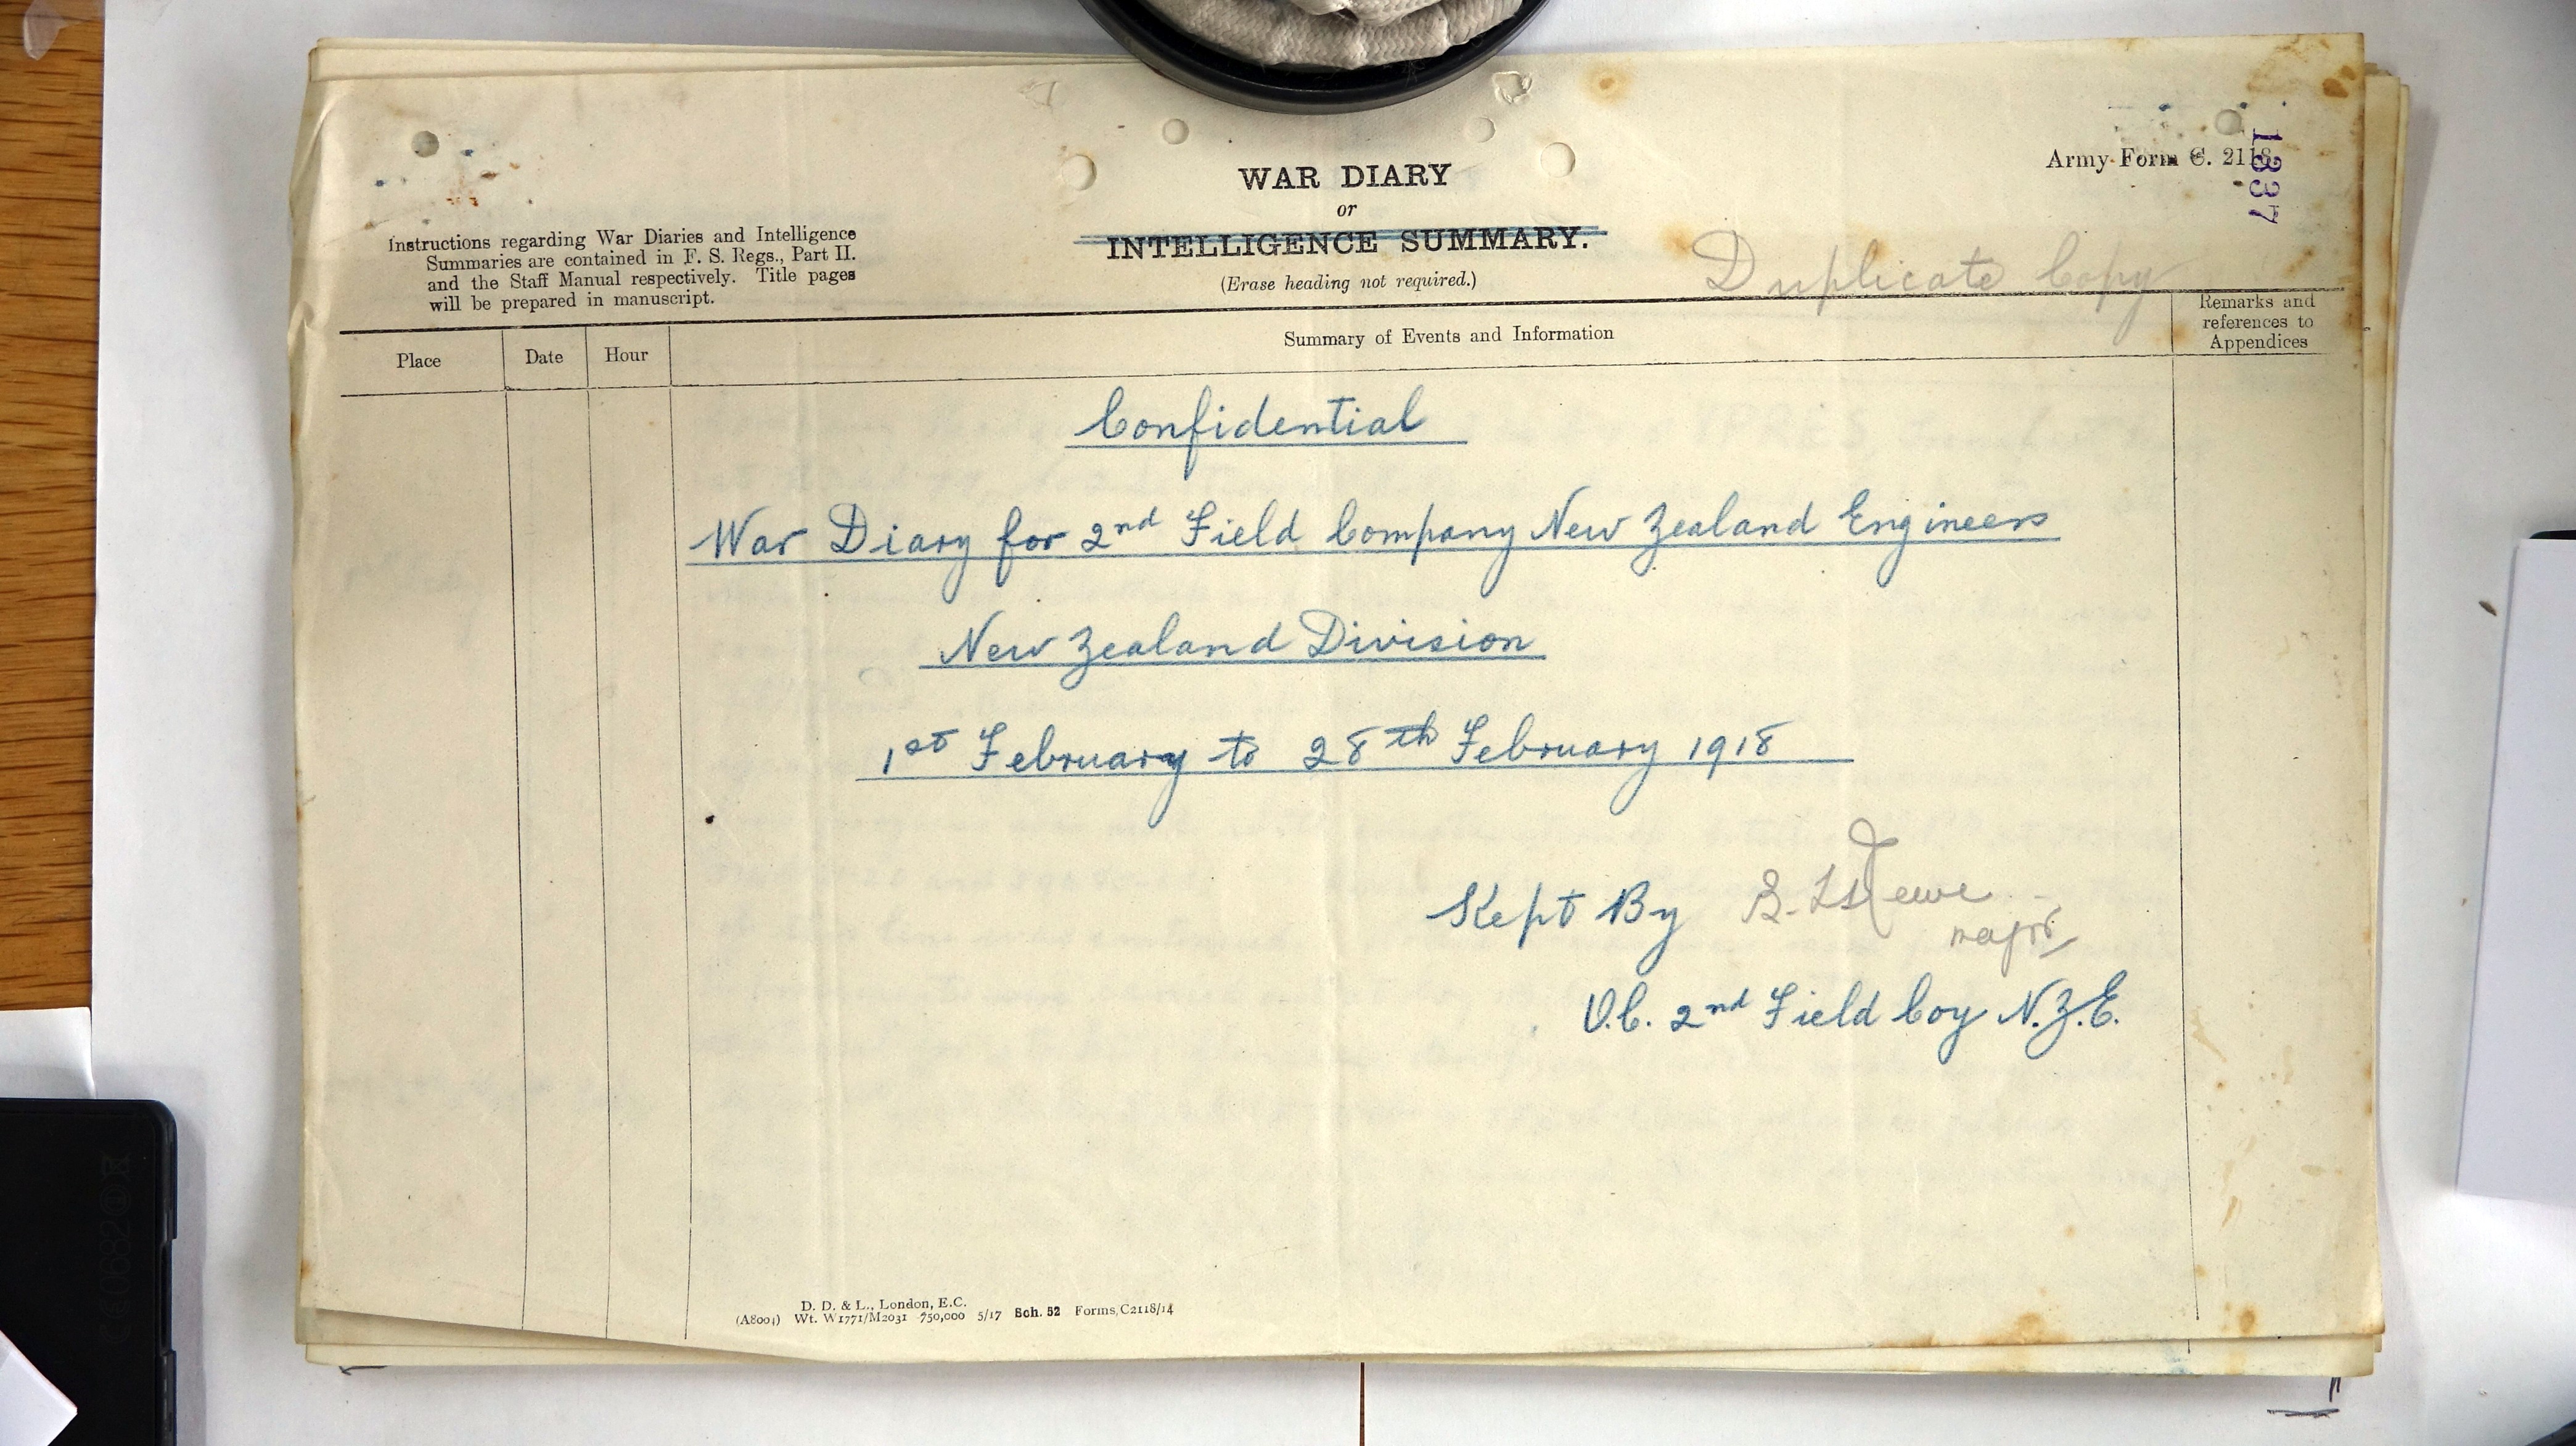 Army Form C. 2118.
1337
WAR DIARY
or
INTELLIGENCE SUMMARY.
(Erase heading not required.)
Instructions regarding War Diaries and Intelligence
Summaries are contained in F. S. Regs., Part II.
and the Staff Manual respectively. Title pages
will be prepared in manuscript.
Duplicate Copy
Place
Date
Hour
Summary of Events and Information
Remarks and
references to
Appendices
Confidential
War Diary for 2nd Field Company New Zealand Engineers
New Zealand Division
1st February to 28th February 1918
Kept By
Major
O.C. 2nd Field Coy N.Z.E.
D. D. & L., London, E.C.
(A8004) Wt. W1771/M2031 750,000 5/17 Sch. 52 Forms,C2118/14